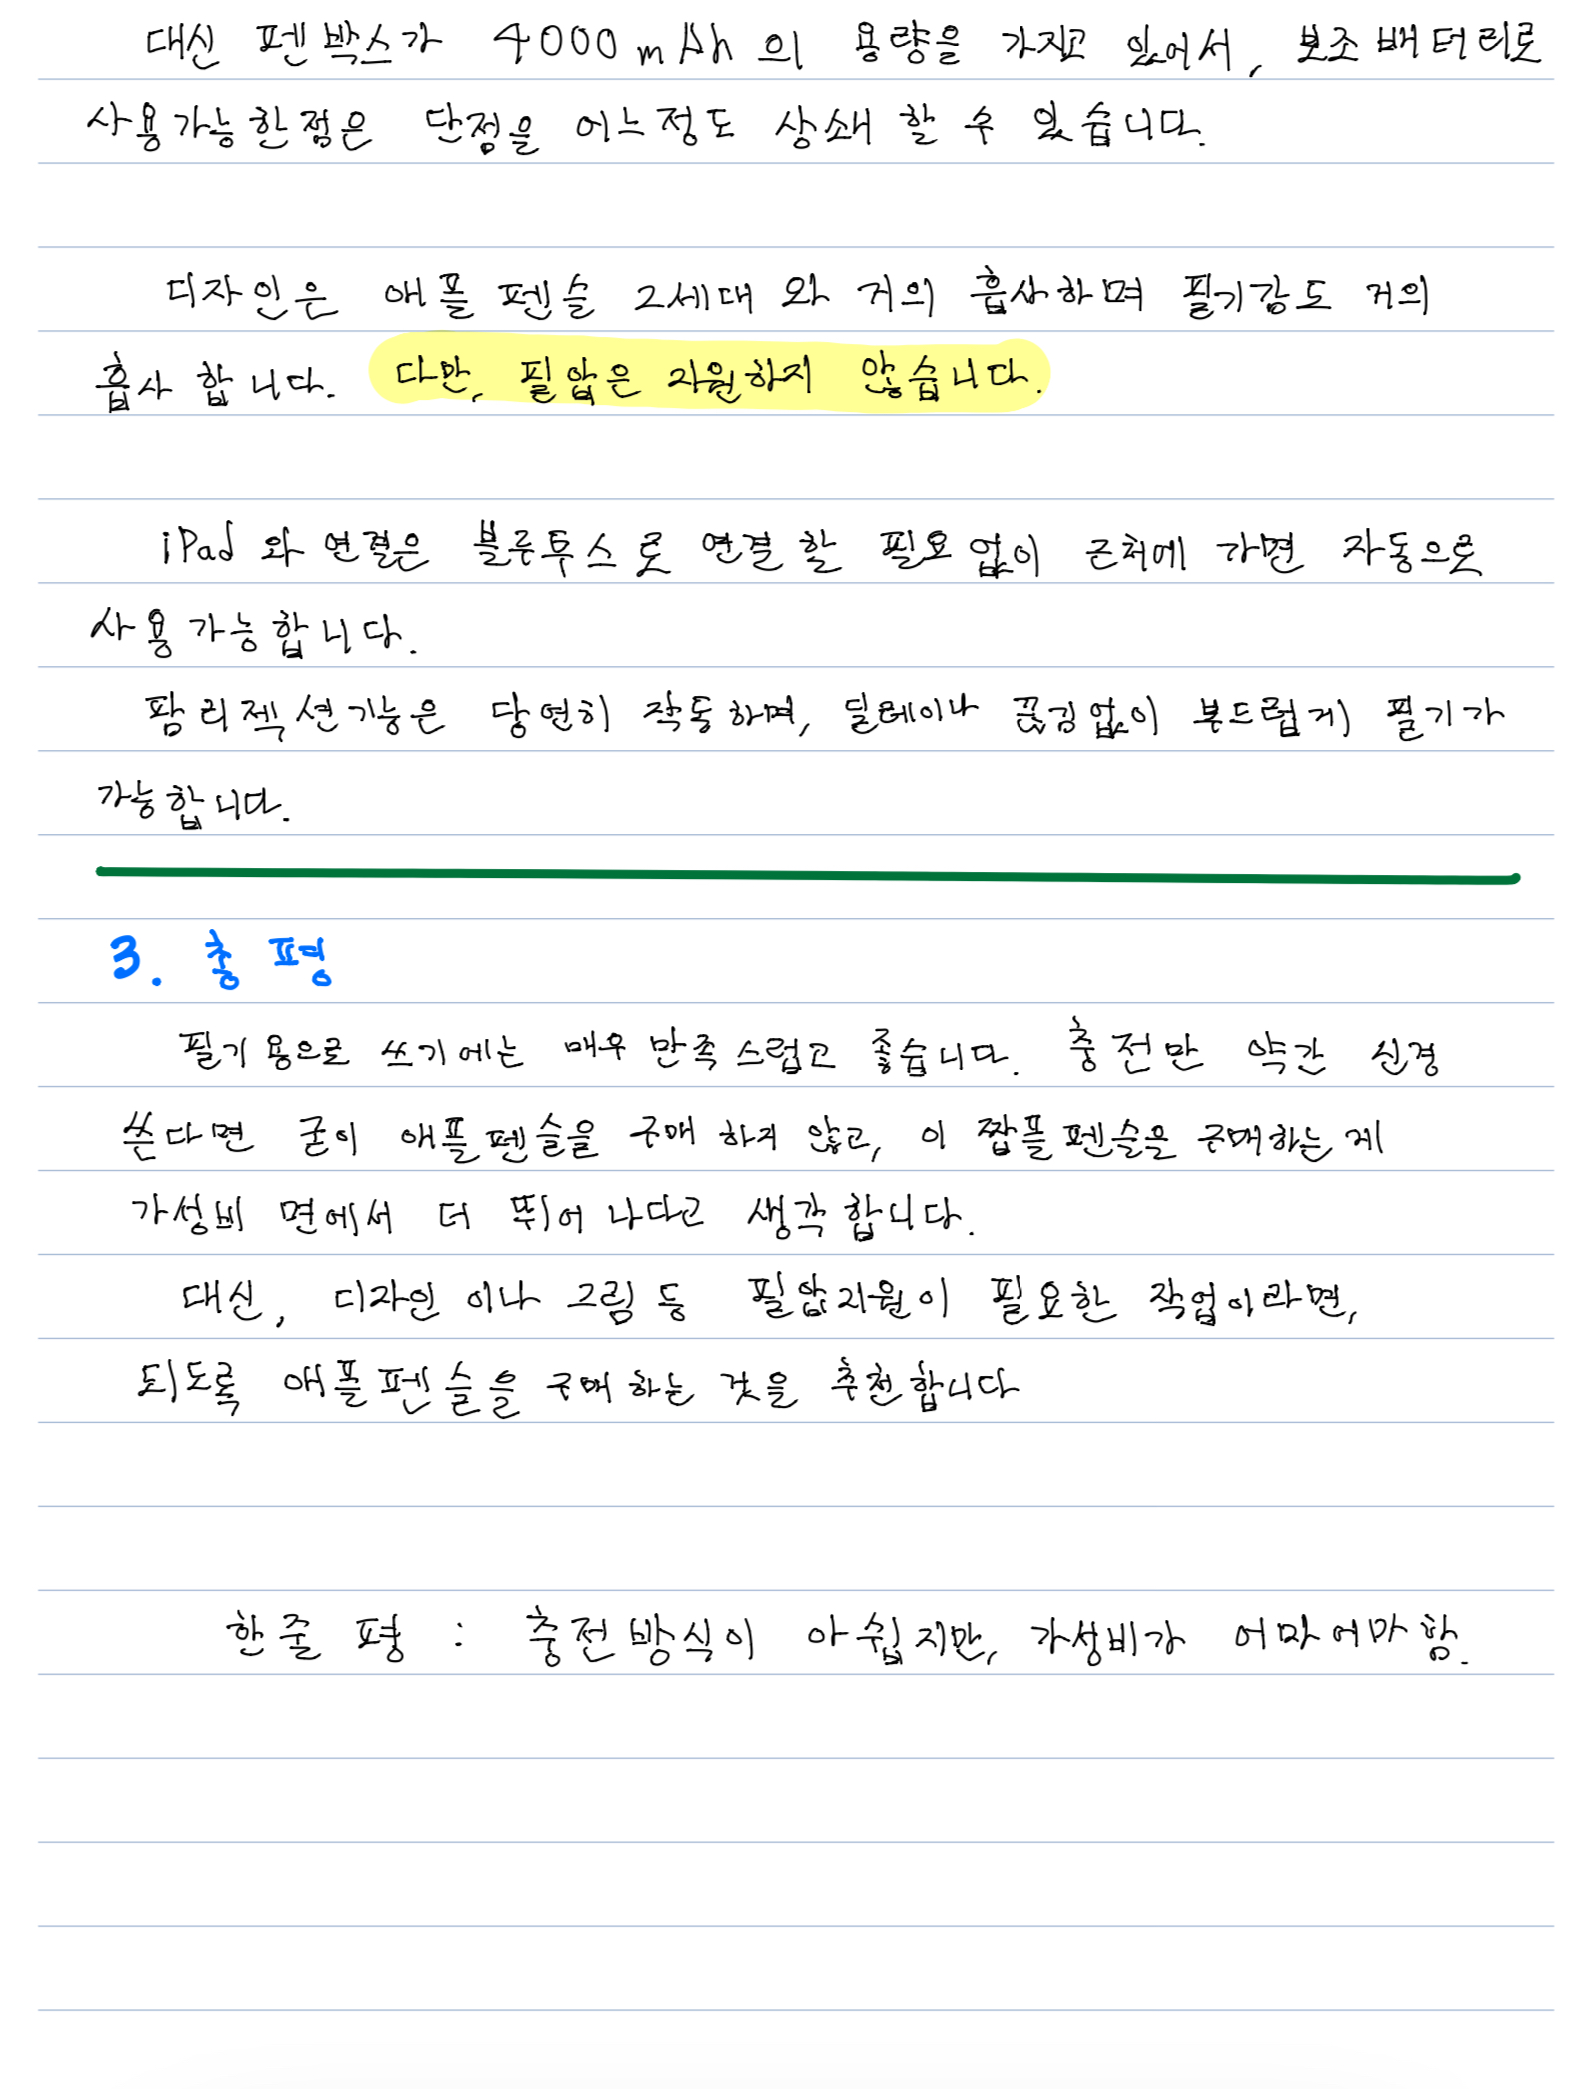 대신 펜박스가 4000mAh의 용량을 가지고 있어서, 보조배터리로
사용가능한점은 단점을 어느정도 상쇄 할 수 있습니다.
디자인은 애플 펜슬 2세대 와 거의 흡사하며 필기감도 거의
흡사 합니다. 다만, 필압은 지원하지 않습니다.
iPad 와 연결은 블루투스로 연결 할 필요없이 근처에 가면 자동으로
사용가능합니다.
팜 리젝션기능은 당연히 작동하며, 딜레이나 끊김없이 부드럽게 필기가
가능합니다.
3. 총평
필기용으로 쓰기에는 매우 만족스럽고 좋습니다. 충전만 약간 신경
쓴다면 굳이 애플펜슬을 구매 하지 않고, 이 짭플펜슬을 구매하는 게
가성비 면에서 더 뛰어나다고 생각합니다.
대신, 디자인 이나 그림 등 필압지원이 필요한 작업이라면,
되도록 애플펜슬을 구매하는 것을 추천합니다
한줄 평 : 충전방식이 아쉽지만, 가성비가 어마어마함.